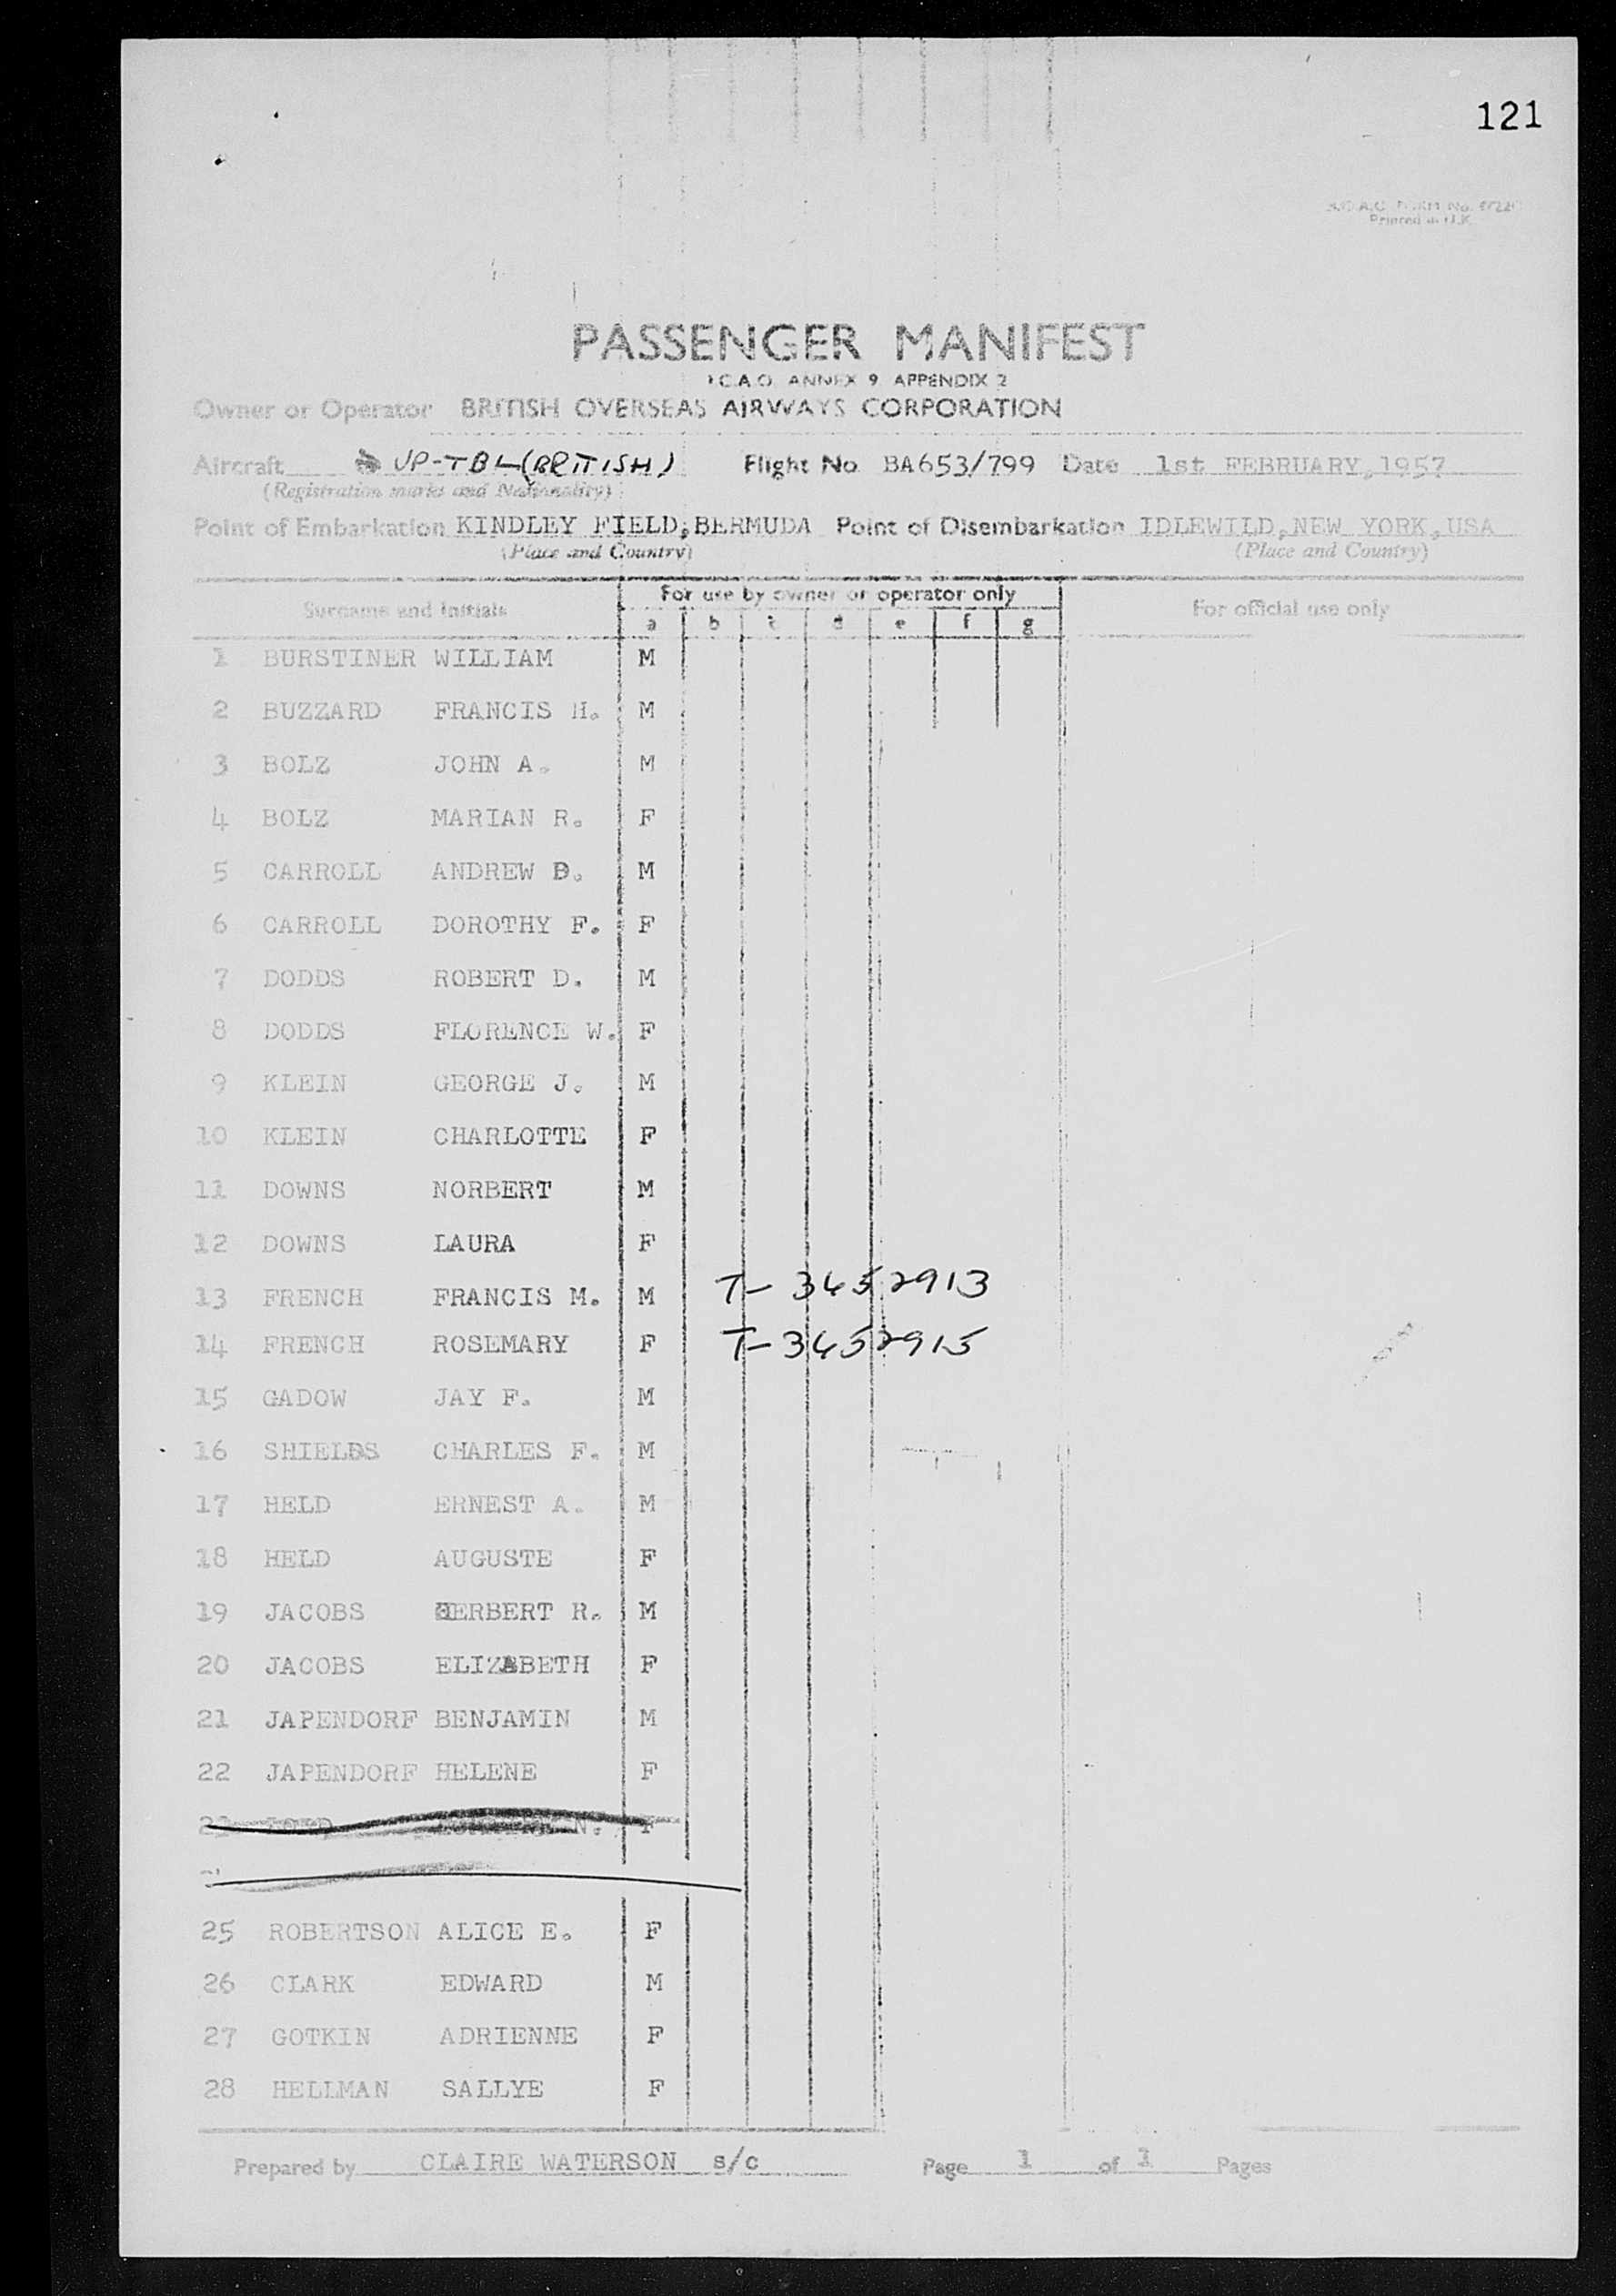 121
Printed in U.K.
PASSENGER MANIFEST
I.C.A.O. ANNEX 9 APPENDIX 2
Owner or Operator BRITISH OVERSEAS AIRWAYS CORPORATION
Aircraft VP-TBL (BRITISH) Flight No. BA653/799 Date 1st FEBRUARY, 1957
(Registration marks and Nationality)
Point of Embarkation KINDLEY FIELD, BERMUDA Point of Disembarkation IDLEWILD, NEW YORK, USA
(Place and Country) (Place and Country)
Surname and Initials For use by owner or operator only For official use only
a b c d e f g
1 BURSTINER WILLIAM M
2 BUZZARD FRANCIS H. M
3 BOLZ JOHN A. M
4 BOLZ MARIAN R. F
5 CARROLL ANDREW D. M
6 CARROLL DOROTHY F. F
7 DODDS ROBERT D. M
8 DODDS FLORENCE W. F
9 KLEIN GEORGE J. M
10 KLEIN CHARLOTTE F
11 DOWNS NORBERT M
12 DOWNS LAURA F
13 FRENCH FRANCIS M. M T-3452913
14 FRENCH ROSEMARY F T-3452915
15 GADOW JAY F. M
16 SHIELDS CHARLES F. M
17 HELD ERNEST A. M
18 HELD AUGUSTE F
19 JACOBS HERBERT R. M
20 JACOBS ELIZABETH F
21 JAPENDORF BENJAMIN M
22 JAPENDORF HELENE F
23 N. F
25 ROBERTSON ALICE E. F
26 CLARK EDWARD M
27 GOTKIN ADRIENNE F
28 HELLMAN SALLYE F
Prepared by CLAIRE WATERSON s/c Page 1 of 1 Pages